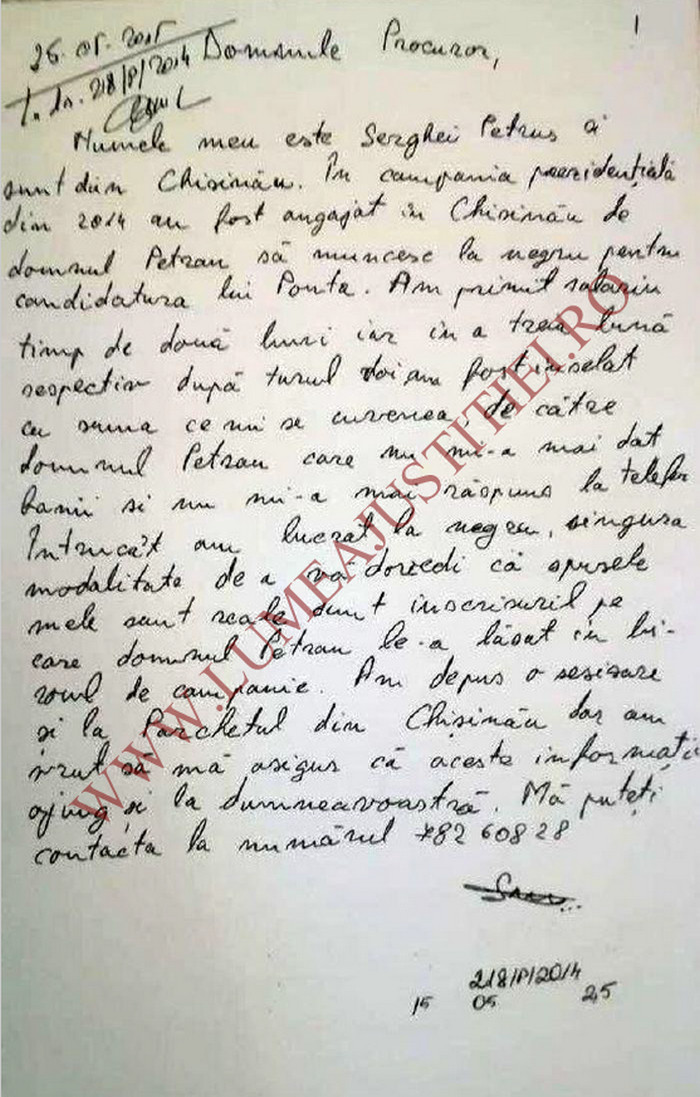 1
25.05.2015
T. ds. 218/P/2014
Domnule Procuror,
Numele meu este Serghei Petrus si
sunt din Chisinău. În campania prezidențială
din 2014 am fost angajat in Chisinău de
domnul Petran să muncesc la negru pentru
candidatura lui Ponta. Am primit salariu
timp de două luni iar in a treia lună
respectiv după turul doi am fost inselat
cu suma ce mi se cuvenea, de către
domnul Petran care nu mi-a mai dat
banii si nu mi-a mai răspuns la telefon
Întrucât am lucrat la negru, singura
modalitate de a vă dovedi că spusele
mele sunt reale sunt inscrisuril pe
care domnul Petran le-a lăsat in bi-
roul de campanie. Am depus o sesizare
și la Parchetul din Chișinău dar am
vrut să mă asigur că aceste informații
ajung și la dumneavoastră. Mă puteți
contacta la numărul 782 608 28
218/P/2014
15 05 25
WWW.LUMEAJUSTITIEI.RO